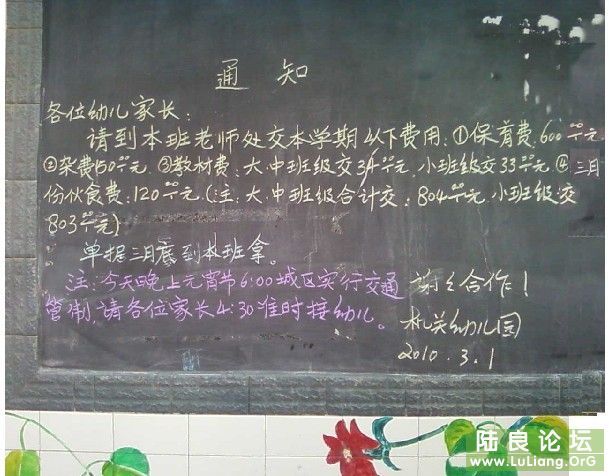 通知
各位幼儿家长:
请到本班老师处交本学期以下费用:①保育费:600⁰⁰元
②杂费:50⁰⁰元.③教材费:大.中班级交34⁰⁰元.小班级交33⁰⁰元.④三月
份伙食费:120⁰⁰元.(注:大.中班级合计交:804⁰⁰元.小班级交
803⁰⁰元)
单据三月底到本班拿。
注:今天晚上元宵节6:00城区实行交通
管制,请各位家长4:30准时接幼儿。
谢々合作!
机关幼儿园
2010.3.1
陆良论坛
www.LuLiang.OrG